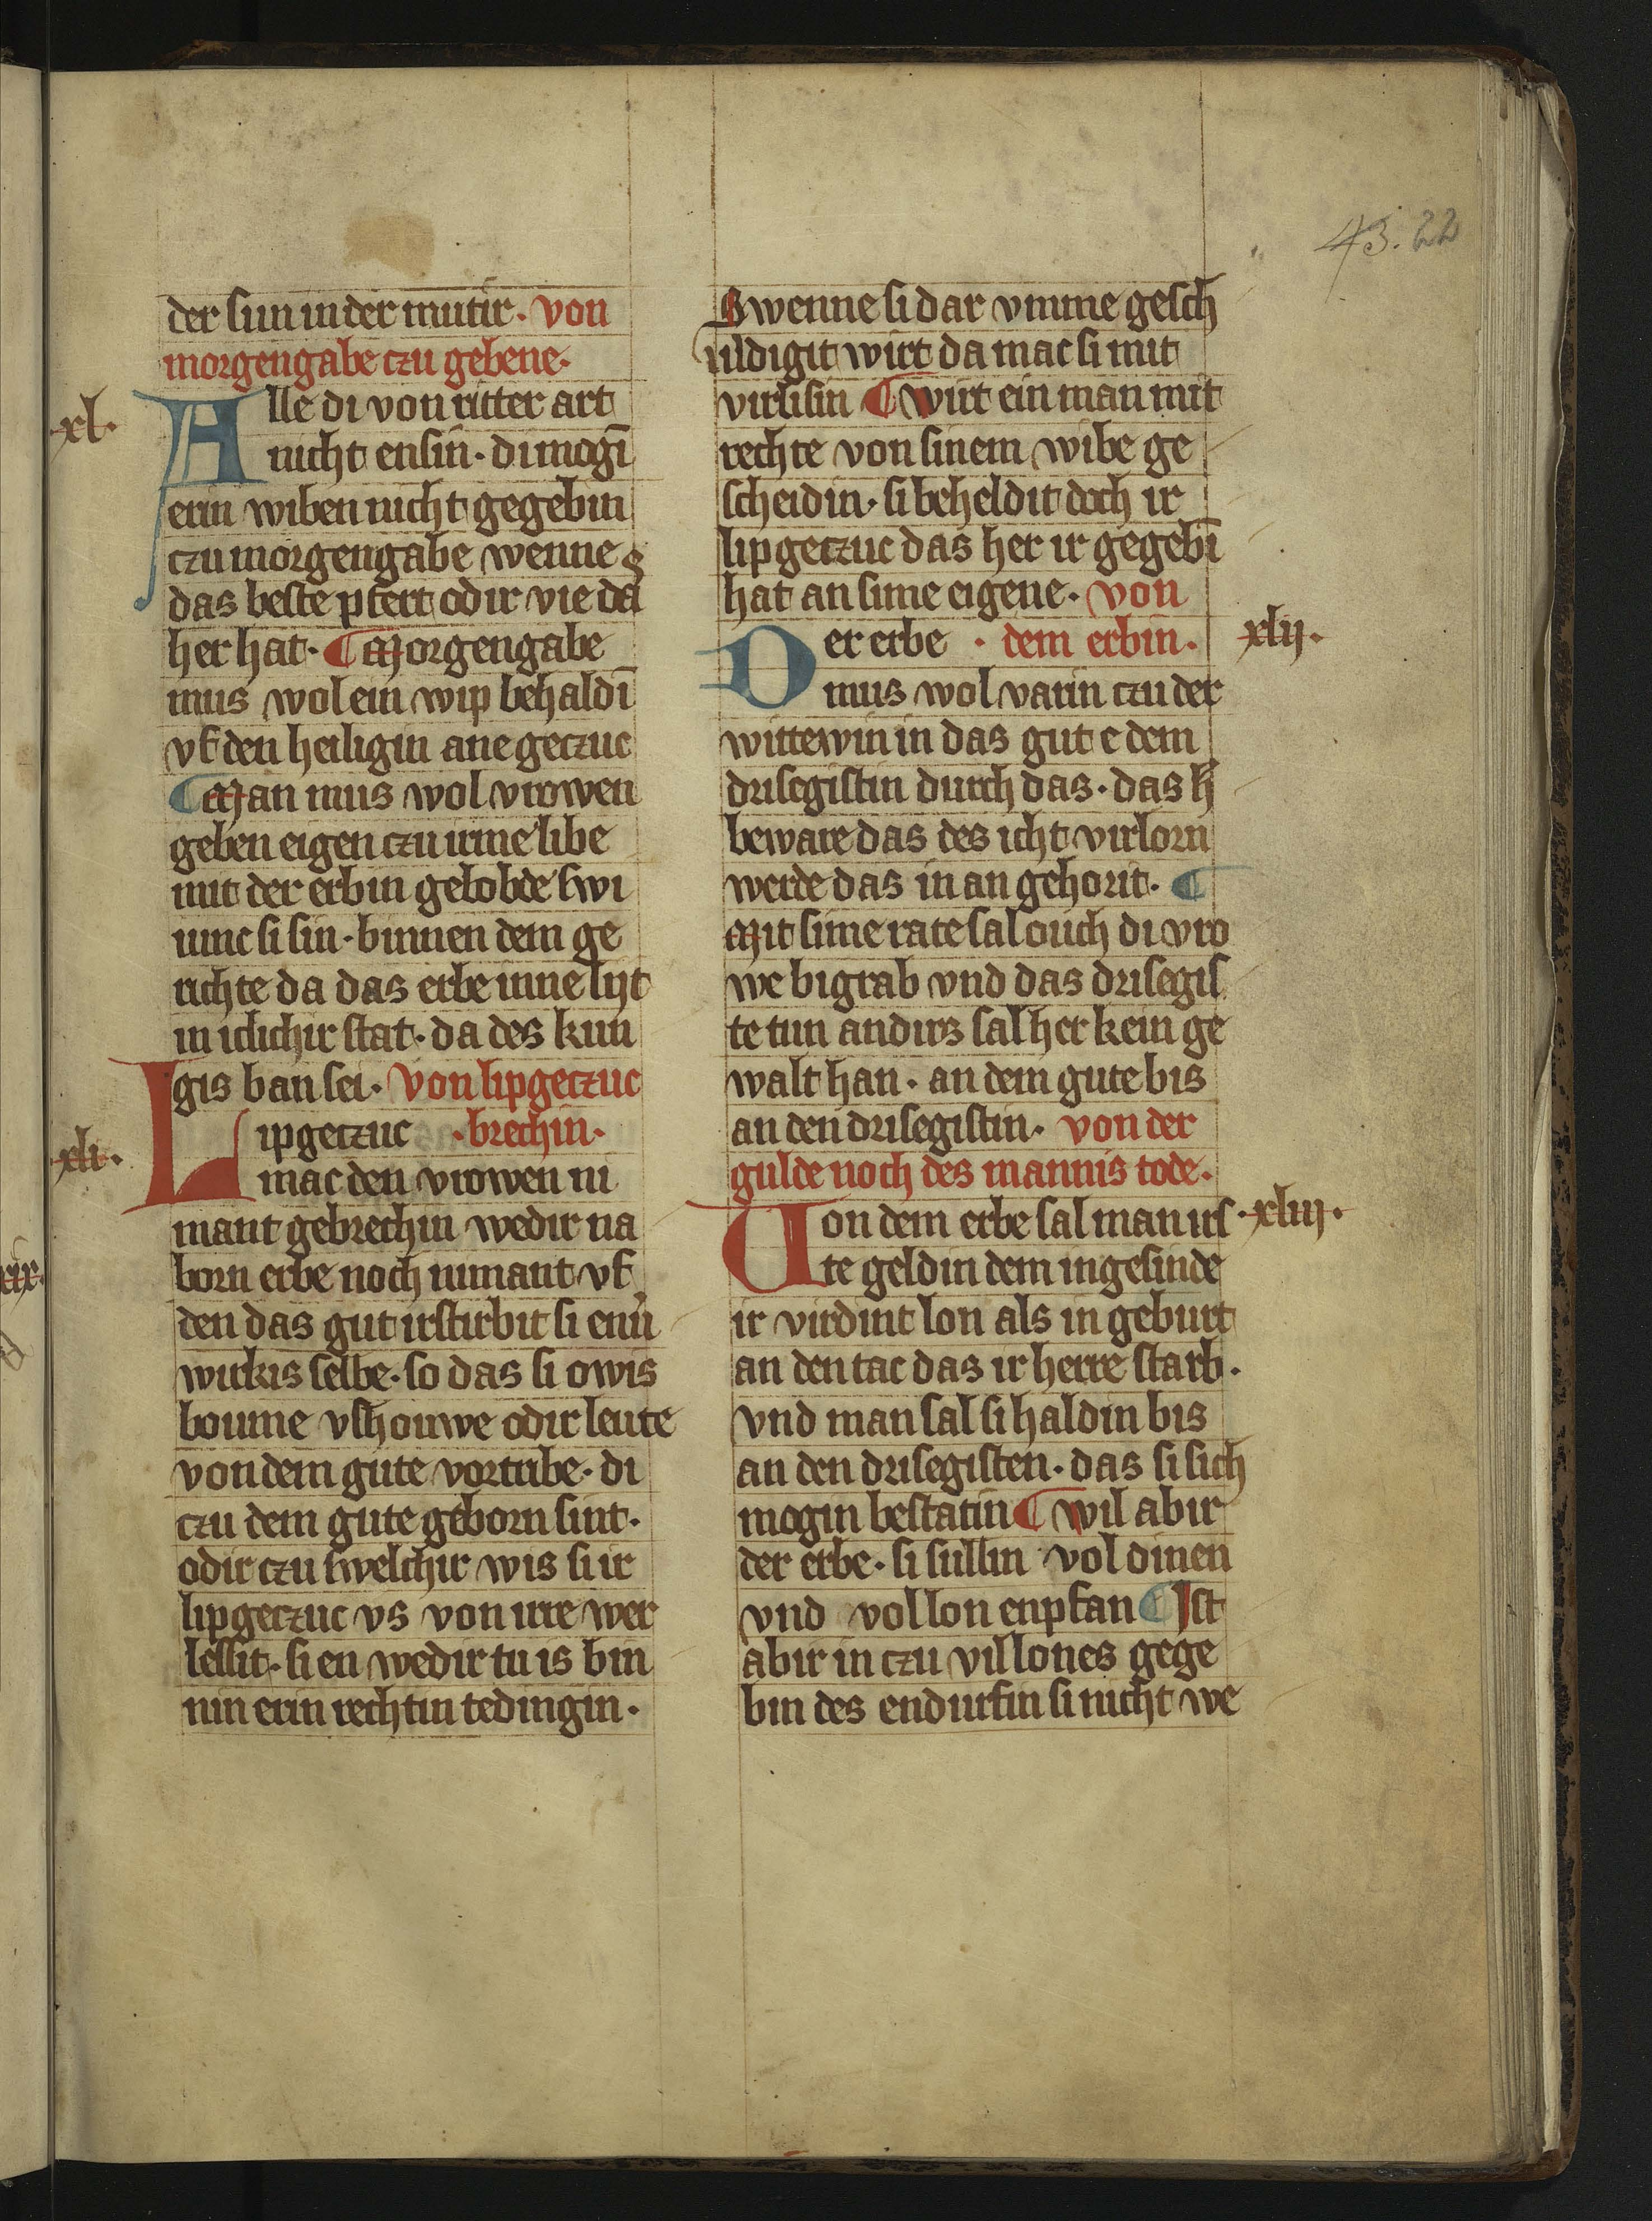 43. 22
der sun in der mutir. von
morgengabe czu gebene.
xl.
Alle di von ritter art
nicht ensin. di mogī
erin wiben nicht gegebin
czu morgengabe wenne
das beste pfert odir vie da
her hat. ¶ Morgengabe
mus wol ein wip behaldī
vf den heiligin ane geczuc
¶ Man mus wol vrowen
geben eigen czu irme libe
mit der erbin gelobde swi
iunc si sin. binnen dem ge
richte da das erbe inne lyt
in iclichir stat. da des kun
gis ban sei. Von lipgeczuc
xli.
Lipgeczuc . brechin.
mac den vrowen ni
mant gebrechin wedir na
born erbe noch nimant vf
den das gut irstirbit si env̄
wirkis selbe. so das si owis
boume vshouwe odir leute
von dem gute vortribe. di
czu dem gute geborn sint.
odir czu swelchir wis si ir
lipgeczuc vs von irre wer
lessit. si en wedir tu is bin
nin erin rechtin tedingin.
Swenne si dar vmme gesch
uldigit wirt da mac si mit
virlisin ¶ wirt ein man mit
rechte von sinem wibe ge
scheidin. si beheldit doch ir
lipgeczuc das her ir gegebī
hat an sime eigene. von
Der erbe . dem erbin.
xlij.
mus wol varin czu der
wittewin in das gut e dem
drisegistin durch das. das h̄
beware das des icht virlorn
werde das in an gehorit. ¶
Mit sime rate sal ouch di vro
we bigrab vnd das drisegis
te tun andirs sal her kein ge
walt han. an dem gute bis
an den drisegistin. von der
gulde noch des mannis tode.
Von dem erbe sal man irs
.xliij.
te geldin dem ingesinde
ir virdint lon als in geburt
an den tac das ir herre starb.
vnd man sal si haldin bis
an den drisegisten. das si sich
mogin bestatin ¶ wil abir
der erbe. si sullin vol dinen
vnd vol lon enpfan ¶ Ist
abir in czu vil lones gege
bin des endurfin si nicht we